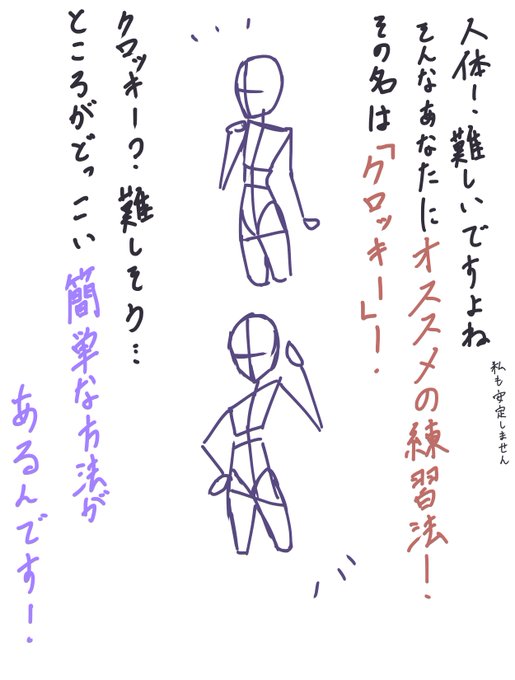 人体!難しいですよね
私も安定しません
そんなあなたにオススメの練習法!
その名は「クロッキー」!
クロッキー?難しそり…
ところがどっこい簡単な方法が
あるんです!